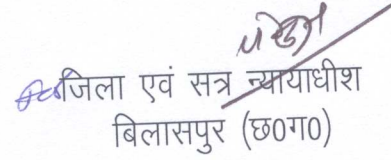 जिला एवं सत्र न्यायाधीश
बिलासपुर (छ0ग0)